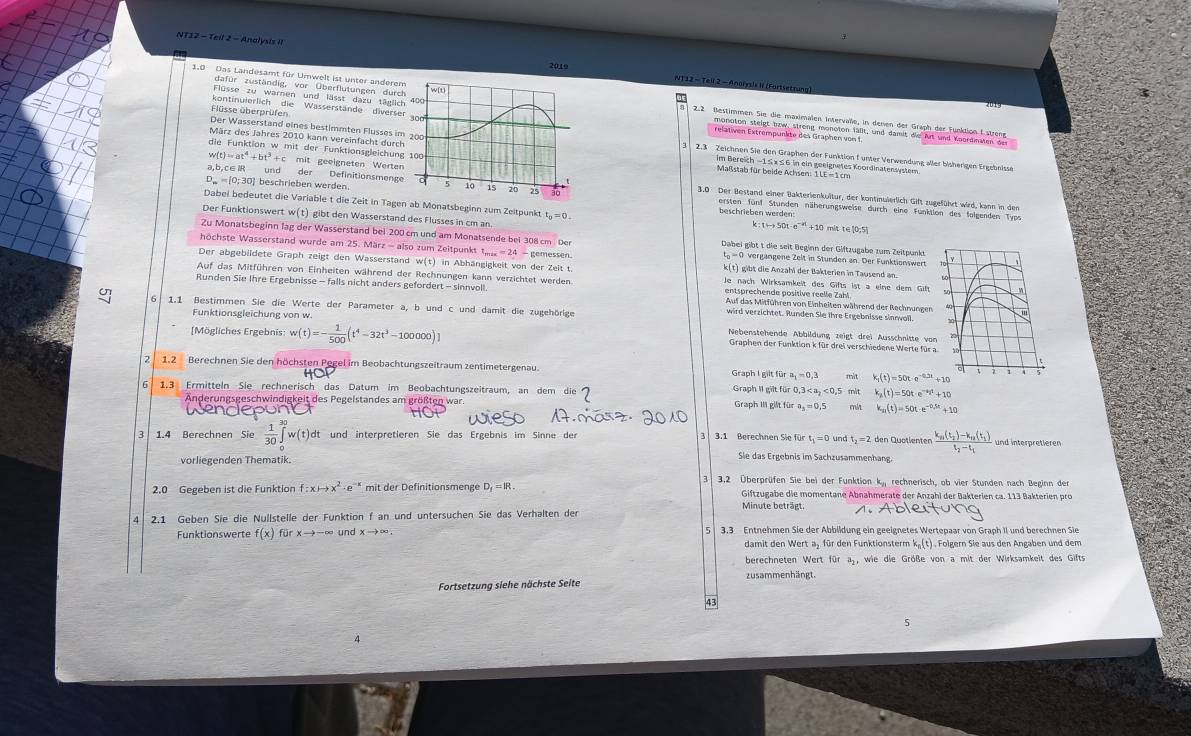 NT12 – Teil 2 – Analysis II
2019
1.0 Das Landesamt für Umwelt ist unter anderem
dafür zuständig, vor Überflutungen durch
Flüsse zu warnen und lässt dazu täglich
kontinuierlich die Wasserstände diverser
Flüsse überprüfen.
Der Wasserstand eines bestimmten Flusses im
März des Jahres 2010 kann vereinfacht durch
die Funktion w mit der Funktionsgleichung
w(t)=at⁴+bt³+c mit geeigneten Werten
a,b,c∈IR und der Definitionsmenge
D_w=[0;30] beschrieben werden.
w(t)
400
300
200
100
0 5 10 15 20 25 30 t
Dabei bedeutet die Variable t die Zeit in Tagen ab Monatsbeginn zum Zeitpunkt t₀=0.
Der Funktionswert w(t) gibt den Wasserstand des Flusses in cm an.
Zu Monatsbeginn lag der Wasserstand bei 200 cm und am Monatsende bei 308 cm. Der
höchste Wasserstand wurde am 25. März – also zum Zeitpunkt t_max=24 – gemessen.
Der abgebildete Graph zeigt den Wasserstand w(t) in Abhängigkeit von der Zeit t.
Auf das Mitführen von Einheiten während der Rechnungen kann verzichtet werden.
Runden Sie Ihre Ergebnisse – falls nicht anders gefordert – sinnvoll.
57
6 1.1 Bestimmen Sie die Werte der Parameter a, b und c und damit die zugehörige
Funktionsgleichung von w.
[Mögliches Ergebnis: w(t)=-1/500(t⁴-32t³-100000)]
2 1.2 Berechnen Sie den höchsten Pegel im Beobachtungszeitraum zentimetergenau.
HOP
6 1.3 Ermitteln Sie rechnerisch das Datum im Beobachtungszeitraum, an dem die ?
Änderungsgeschwindigkeit des Pegelstandes am größten war.
Wendepunkt HOP wieso 17.märz. 2010
3 1.4 Berechnen Sie 1/30 ∫₀³⁰ w(t)dt und interpretieren Sie das Ergebnis im Sinne der
vorliegenden Thematik.
2.0 Gegeben ist die Funktion f:x↦x²·e⁻ˣ mit der Definitionsmenge D_f=IR.
4 2.1 Geben Sie die Nullstelle der Funktion f an und untersuchen Sie das Verhalten der
Funktionswerte f(x) für x→-∞ und x→∞.
Fortsetzung siehe nächste Seite
4
3
NT12 – Teil 2 – Analysis II (Fortsetzung)
2019
BE
8 2.2 Bestimmen Sie die maximalen Intervalle, in denen der Graph der Funktion f streng
monoton steigt bzw. streng monoton fällt, und damit die Art und Koordinaten der
relativen Extrempunkte des Graphen von f.
3 2.3 Zeichnen Sie den Graphen der Funktion f unter Verwendung aller bisherigen Ergebnisse
im Bereich -1≤x≤6 in ein geeignetes Koordinatensystem.
Maßstab für beide Achsen: 1LE=1cm
3.0 Der Bestand einer Bakterienkultur, der kontinuierlich Gift zugeführt wird, kann in den
ersten fünf Stunden näherungsweise durch eine Funktion des folgenden Typs
beschrieben werden:
k:t↦50t·e^(-at)+10 mit t∈[0;5]
Dabei gibt t die seit Beginn der Giftzugabe zum Zeitpunkt
t₀=0 vergangene Zeit in Stunden an. Der Funktionswert
k(t) gibt die Anzahl der Bakterien in Tausend an.
Je nach Wirksamkeit des Gifts ist a eine dem Gift
entsprechende positive reelle Zahl.
Auf das Mitführen von Einheiten während der Rechnungen
wird verzichtet. Runden Sie Ihre Ergebnisse sinnvoll.
Nebenstehende Abbildung zeigt drei Ausschnitte von
Graphen der Funktion k für drei verschiedene Werte für a.
y
I
II
III
70
60
50
40
30
20
10
0 1 2 3 4 5
t
Graph I gilt für a₁=0,3 mit k_I(t)=50t·e^(-0,3t)+10
Graph II gilt für 0,3<a₂<0,5 mit k_II(t)=50t·e^(-a₂t)+10
Graph III gilt für a₃=0,5 mit k_III(t)=50t·e^(-0,5t)+10
3 3.1 Berechnen Sie für t₁=0 und t₂=2 den Quotienten (k_III(t₂)-k_III(t₁))/(t₂-t₁) und interpretieren
Sie das Ergebnis im Sachzusammenhang.
3 3.2 Überprüfen Sie bei der Funktion k_III rechnerisch, ob vier Stunden nach Beginn der
Giftzugabe die momentane Abnahmerate der Anzahl der Bakterien ca. 113 Bakterien pro
Minute beträgt.
1. Ableitung
5 3.3 Entnehmen Sie der Abbildung ein geeignetes Wertepaar von Graph II und berechnen Sie
damit den Wert a₂ für den Funktionsterm k_II(t). Folgern Sie aus den Angaben und dem
berechneten Wert für a₂, wie die Größe von a mit der Wirksamkeit des Gifts
zusammenhängt.
43
5